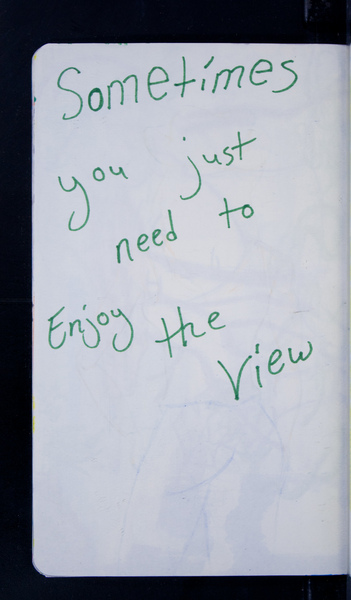 Sometimes
you just
need to
Enjoy the
View